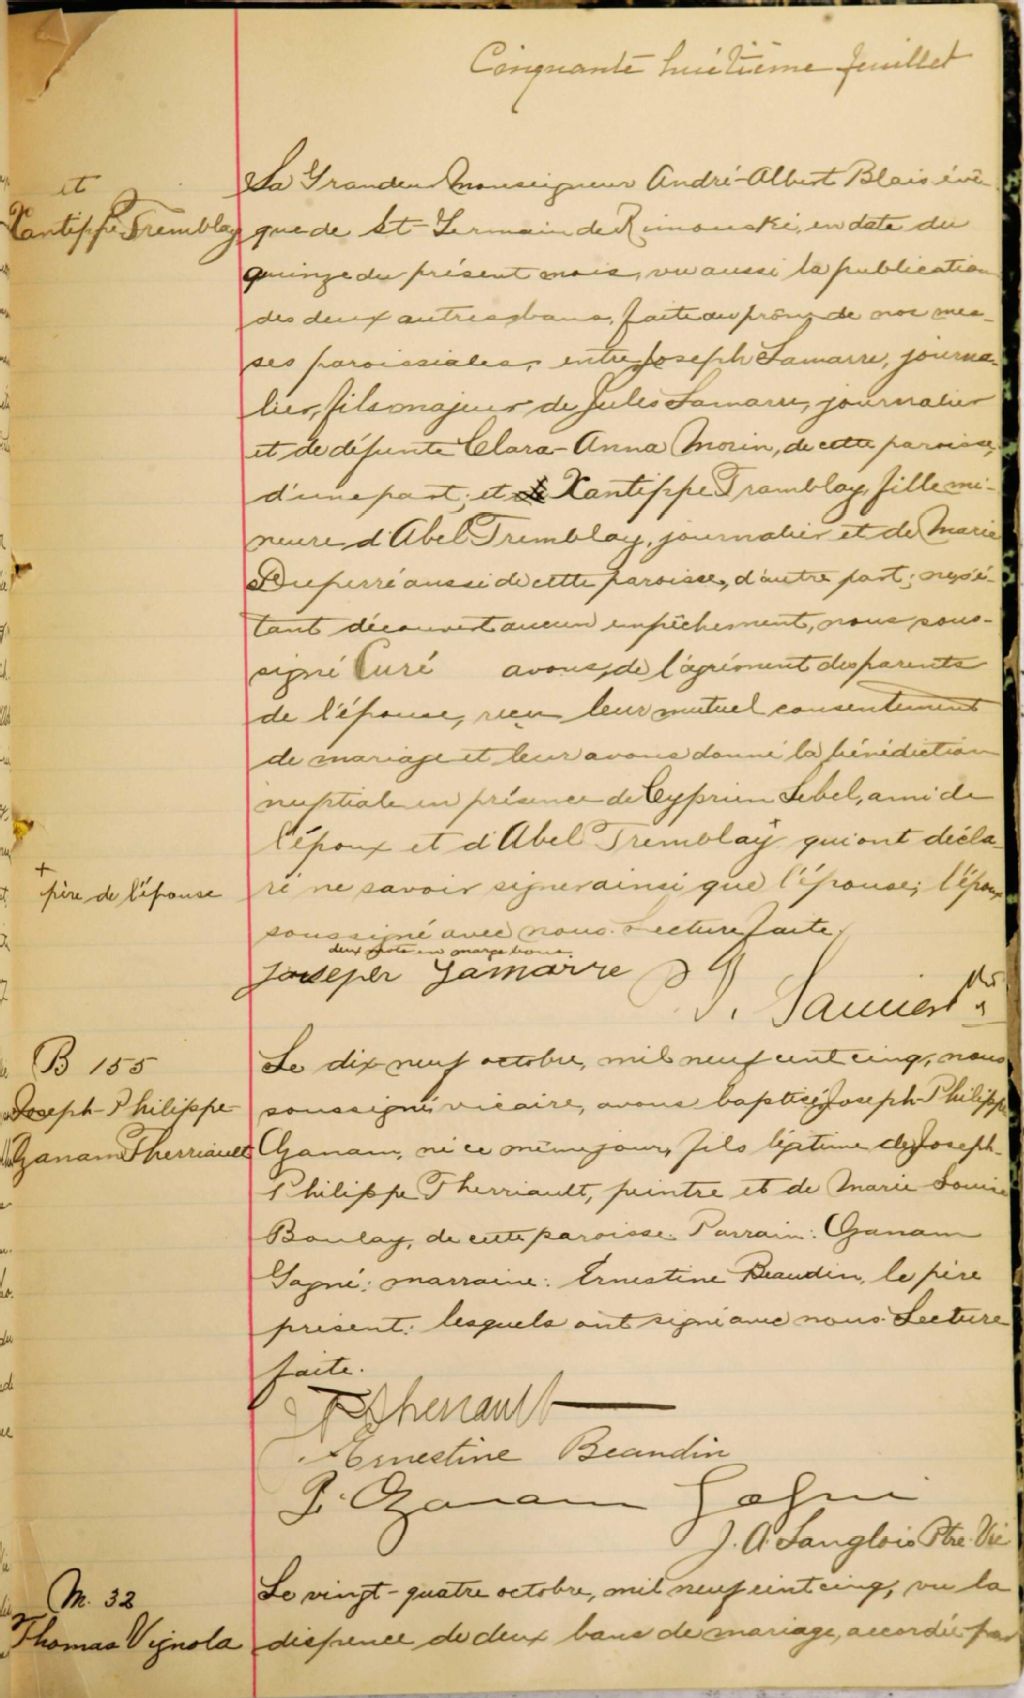 Cinquante huitième feuillet
et
Xantippe Tremblay
Sa Grandeur Monseigneur André-Albert Blais évê-
que de St-Germain de Rimouski, en date du
quinze du présent mois, vu aussi la publication
des deux autres bans, faite au prône de nos mes-
ses paroissiales, entre Joseph Lamarre, journa-
lier, fils majeur de Jules Lamarre, journalier
et de défunte Clara-Anna Morin, de cette paroisse,
d'une part; et Xantippe Tramblay, fille mi-
neure d'Abel Tremblay, journalier et de Marie
Duperré aussi de cette paroisse, d'autre part; ne s'é-
tant découvert aucun empêchement, nous sous-
signé Curé avons, de l'agrément des parents
de l'épouse, reçu leur mutuel consentement
de mariage et leur avons donné la bénédiction
nuptiale en présence de Cyprien Lebel, ami de
l'époux et d'Abel Tremblay+ qui ont décla-
+
père de l'épouse
ré ne savoir signer ainsi que l'épouse; l'époux
soussigné avec nous. Lecture faite.
deux mots en marge bons.
Joseph Lamarre
Ptre
B 155
Joseph-Philippe
Ozanam Therriault
Le dix neuf octobre, mil neuf cent cinq, nous
soussigné, vicaire, avons baptisé Joseph-Philippe
Ozanam, né ce même jour, fils légitime de Joseph-
Philippe Therriault, peintre et de Marie Louise
Boulay, de cette paroisse. Parrain: Ozanam
Gagné: marraine: Ernestine Beaudin, le père
présent: lesquels ont signé avec nous. Lecture
faite.
Therriault
Ernestine Beaudin
P. Ozanam Gagné
J. A. Langlois Ptre. Vic
M. 32
Thomas Vignola
Le vingt-quatre octobre, mil neuf cent cinq, vu la
dispence de deux bans de mariage, accordée par